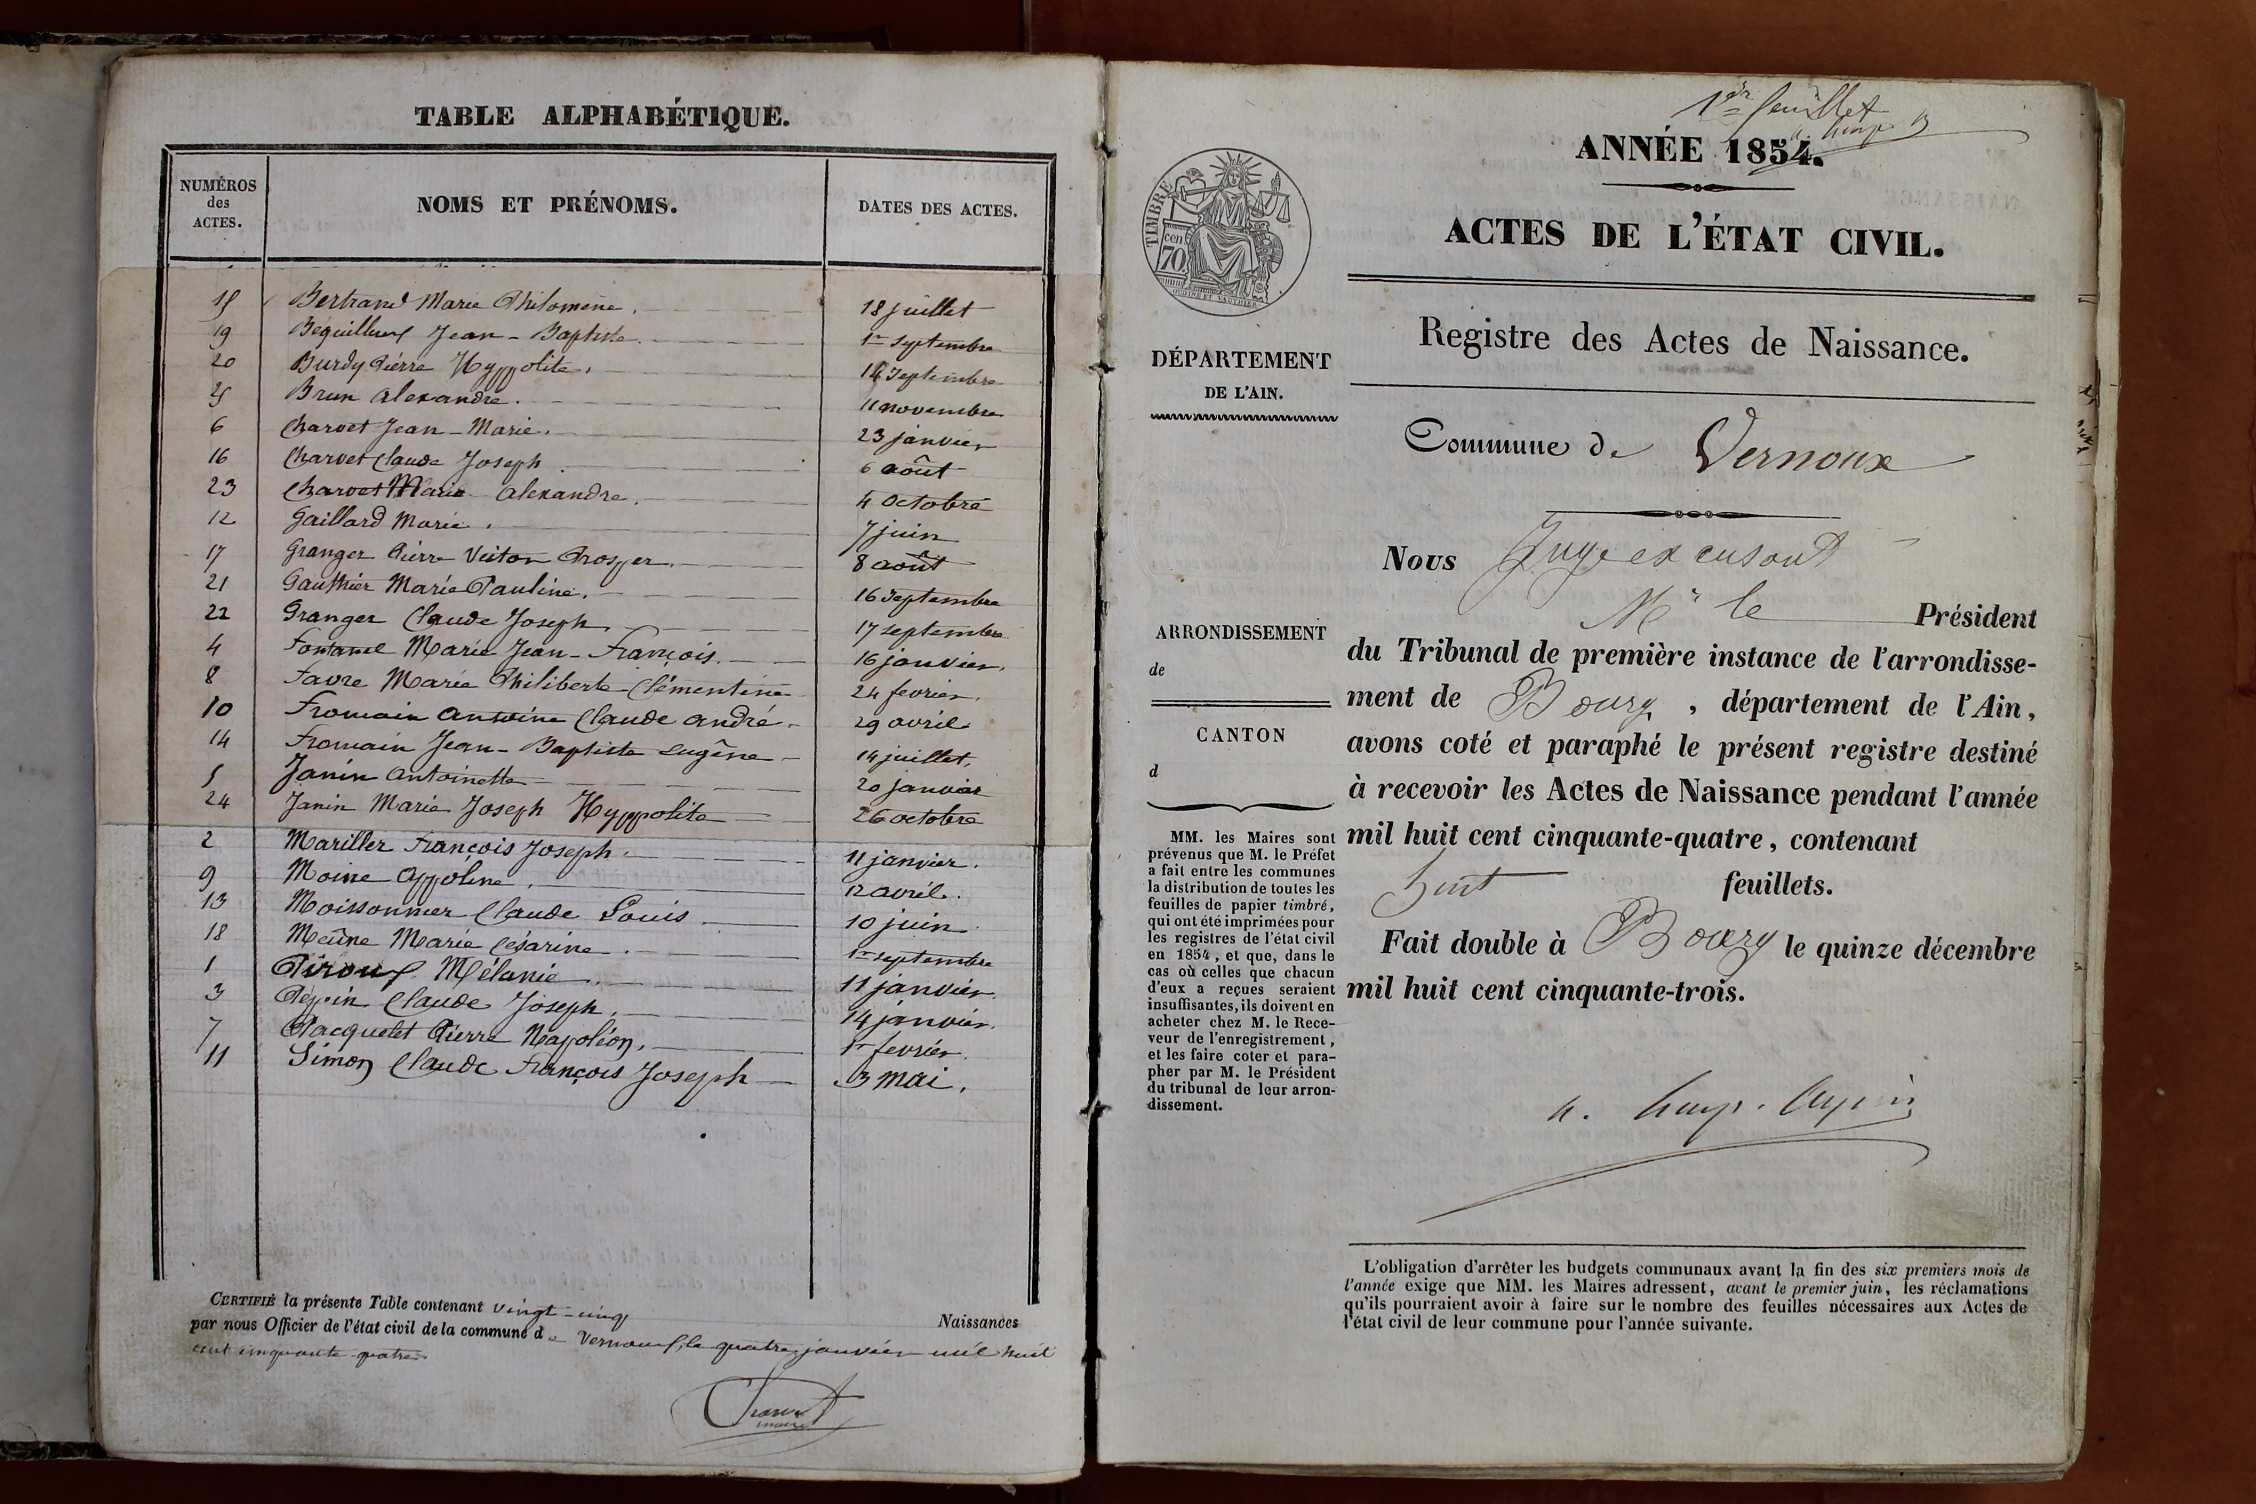 TABLE ALPHABÉTIQUE.
NUMÉROS des ACTES. NOMS ET PRÉNOMS. DATES DES ACTES.
15 Bertrand Marie Philomène. 18 juillet
19 Béguilloux Jean-Baptiste. 1er septembre
20 Burdy Pierre Hyppolite. 14 septembre
25 Brun alexandre. 11 novembre
6 Charvet Jean-Marie. 23 janvier
16 Charvet Claude Joseph. 6 août
23 Charvet Marie alexandre. 4 octobre
12 Gaillard Marie. 7 juin
17 Granger Pierre Victor Prosper. 8 août
21 Gauthier Marie Pauline. 16 septembre
22 Granger Claude Joseph. 17 septembre
4 Fontanel Marie Jean-François. 16 janvier.
8 Favre Marie Philiberte Clémentine 24 fevrier.
10 Fromain antoine Claude andré. 29 avril
14 Fromain Jean-Baptiste eugêne 14 juillet.
5 Janin antoinette 20 janvier
24 Janin Marie Joseph Hyppolite 26 octobre
2 Mariller François Joseph. 11 janvier.
9 Moine Appoline. 12 avril.
13 Moissonnier Claude Louis 10 juin
18 Meûne Marie Césarine. 1er septembre
1 Piroux Mélanie. 11 janvier.
3 Pépin Claude Joseph. 14 janvier.
7 Pacquelet Pierre Napoléon. 1er fevrier.
11 Simon Claude François Joseph 3 mai.
CERTIFIÉ la présente Table contenant vingt-cinq Naissances
par nous Officier de l'état civil de la commune de Vernoux, le quatre janvier mil huit
cent cinquante-quatre
Charvet
maire
1er feuillet
ANNÉE 1854.
ACTES DE L'ÉTAT CIVIL.
TIMBRE
70 cen.
Registre des Actes de Naissance.
DÉPARTEMENT
DE L'AIN.
Commune de Vernoux
Nous Juge excusant
Mr le Président
ARRONDISSEMENT
de
CANTON
d
du Tribunal de première instance de l'arrondisse-
ment de Bourg, département de l'Ain,
avons coté et paraphé le présent registre destiné
à recevoir les Actes de Naissance pendant l'année
mil huit cent cinquante-quatre, contenant
huit feuillets.
Fait double à Bourg le quinze décembre
mil huit cent cinquante-trois.
MM. les Maires sont
prévenus que M. le Préfet
a fait entre les communes
la distribution de toutes les
feuilles de papier timbré,
qui ont été imprimées pour
les registres de l'état civil
en 1854, et que, dans le
cas où celles que chacun
d'eux a reçues seraient
insuffisantes, ils doivent en
acheter chez M. le Rece-
veur de l'enregistrement,
et les faire coter et para-
pher par M. le Président
du tribunal de leur arron-
dissement.
L'obligation d'arrêter les budgets communaux avant la fin des six premiers mois de
l'année exige que MM. les Maires adressent, avant le premier juin, les réclamations
qu'ils pourraient avoir à faire sur le nombre des feuilles nécessaires aux Actes de
l'état civil de leur commune pour l'année suivante.